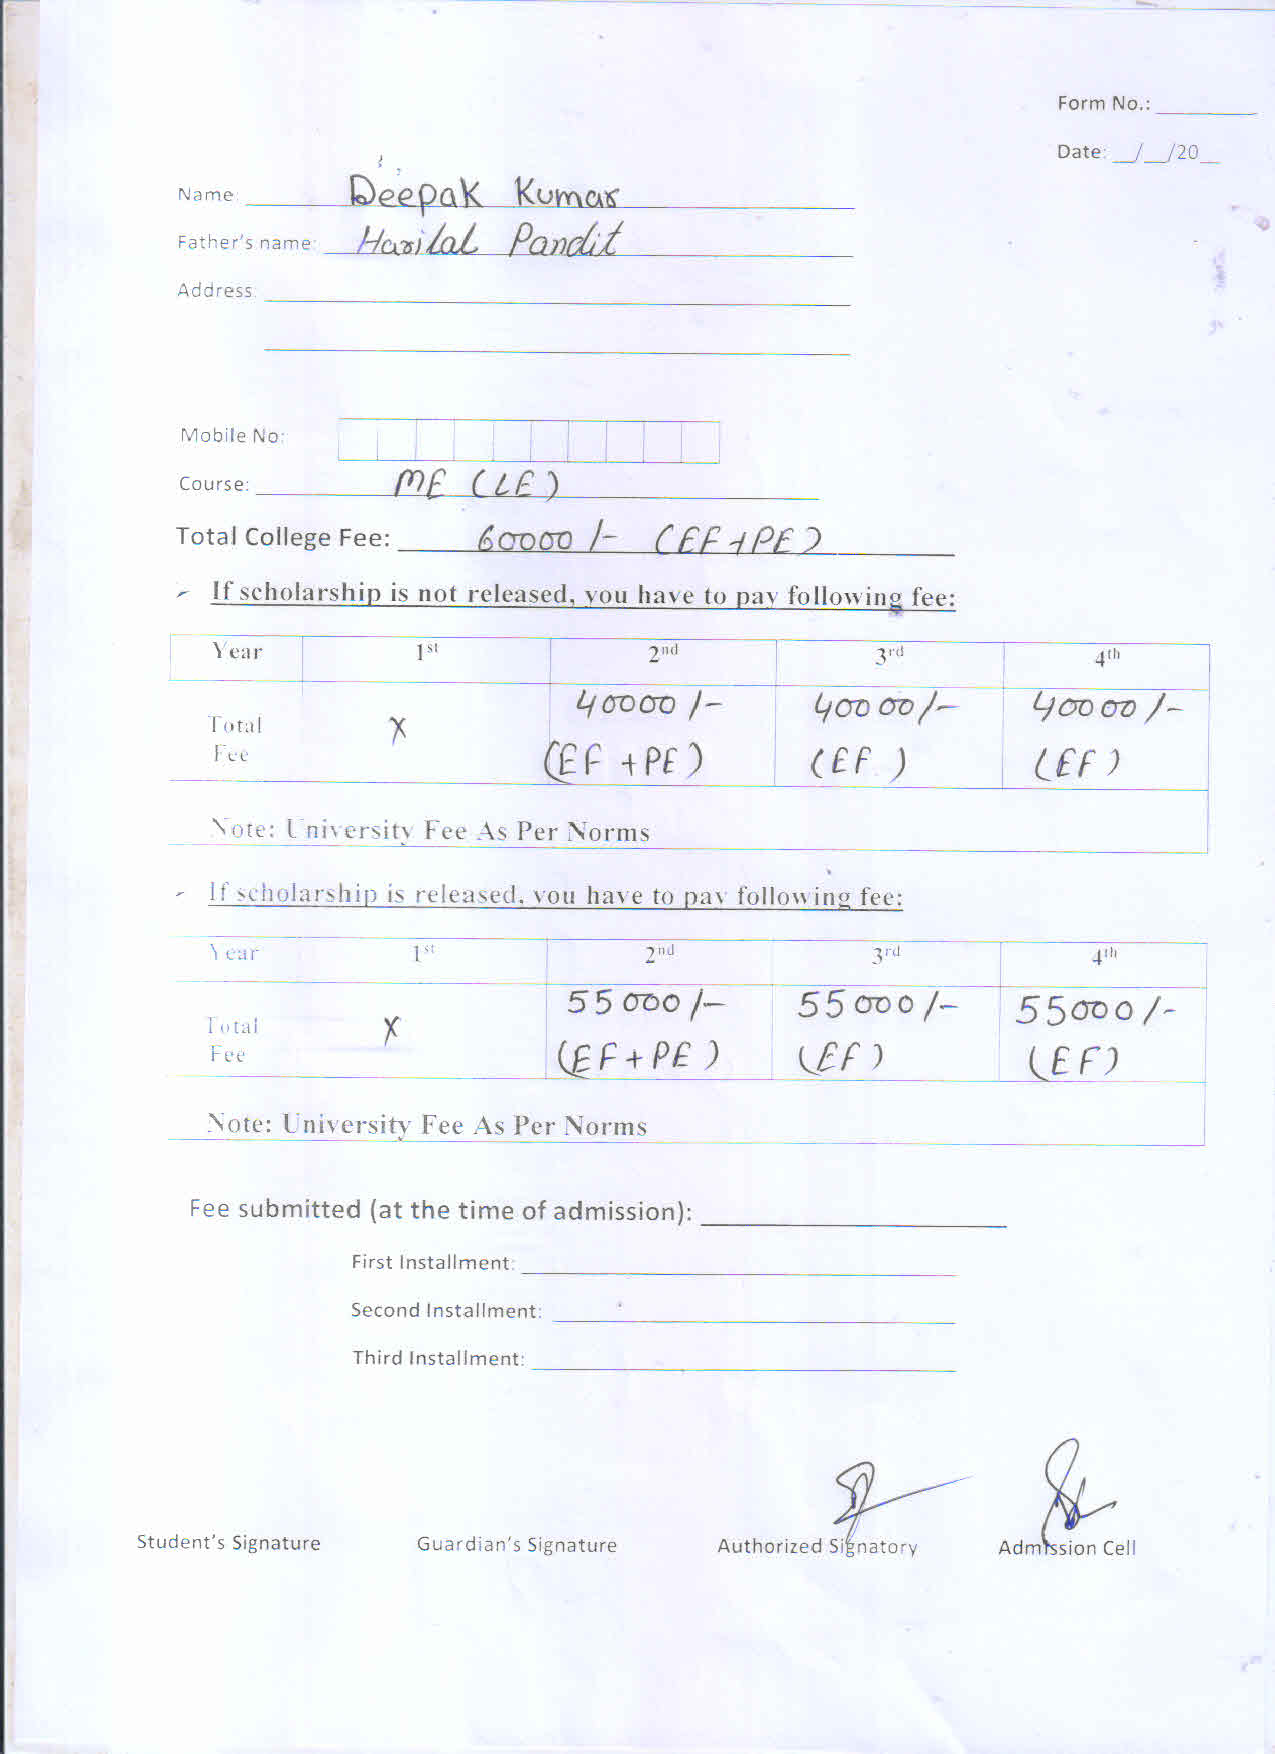 Form No.:
Date: __/__/20__
Name: Deepak Kumar
Father's name: Harilal Pandit
Address:
Mobile No:
Course: ME (LE)
Total College Fee: 60000/- (EF+PE)
If scholarship is not released, you have to pay following fee:
Year 1st 2nd 3rd 4th
Total Fee X 40000/- (EF+PE) 40000/- (EF) 40000/- (EF)
Note: University Fee As Per Norms
If scholarship is released, you have to pay following fee:
Year 1st 2nd 3rd 4th
Total Fee X 55000/- (EF+PE) 55000/- (EF) 55000/- (EF)
Note: University Fee As Per Norms
Fee submitted (at the time of admission):
First Installment:
Second Installment:
Third Installment:
Student's Signature Guardian's Signature Authorized Signatory Admission Cell